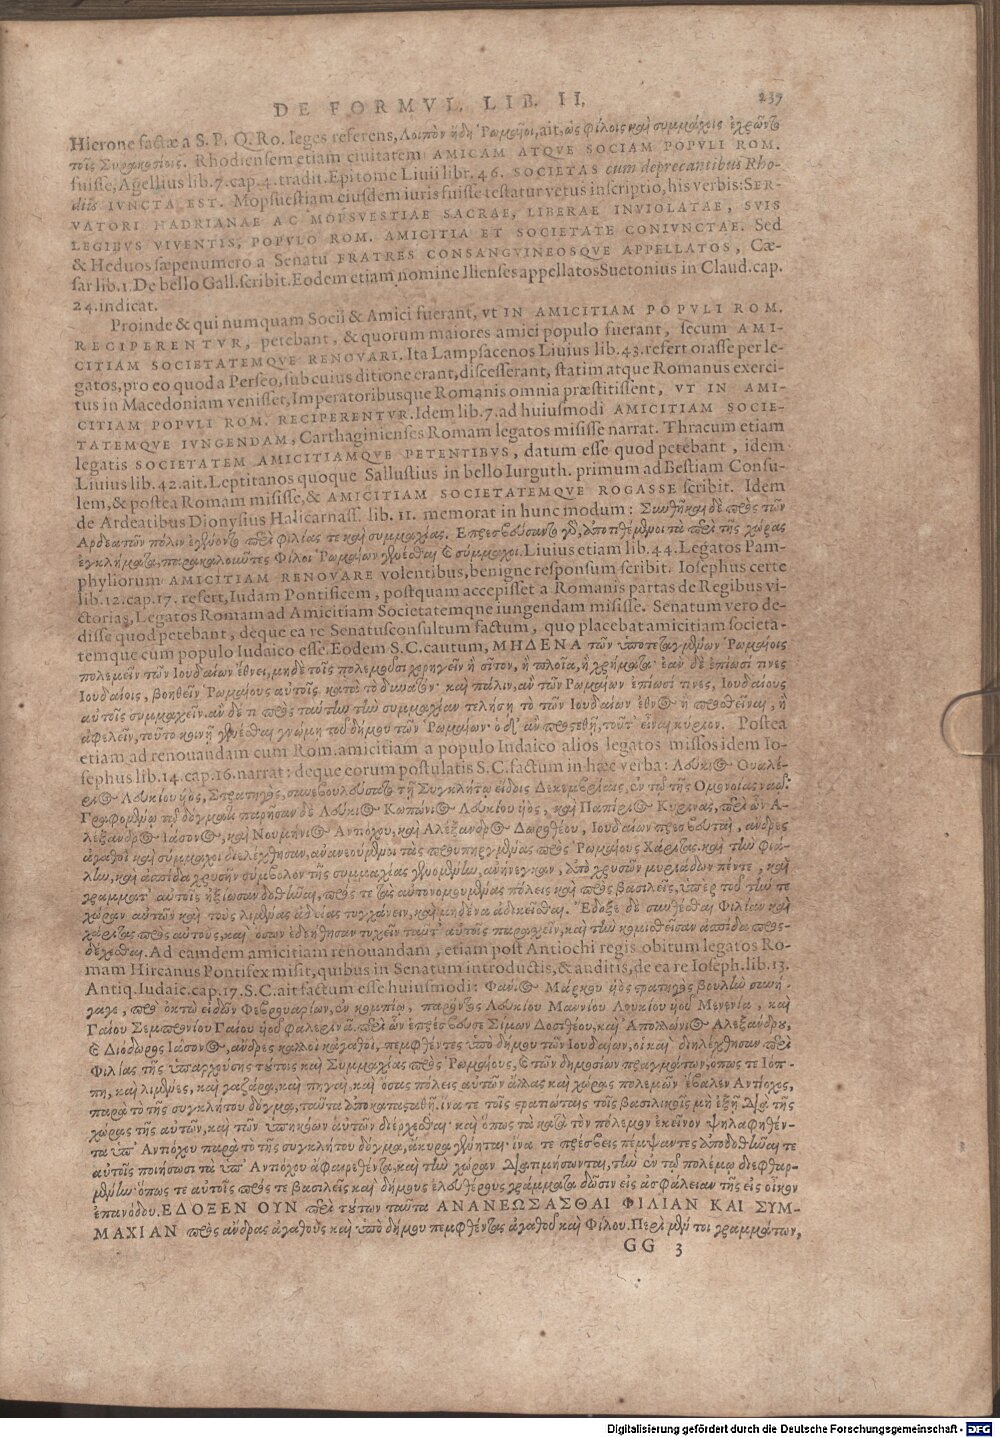 DE FORMVL. LIB. II. 237
Hierone factæ a S. P. Q. Ro. leges referens, Λοιπὸν ἤδη Ῥωμαῖοι, ait, ὡς φίλοις καὶ συμμάχοις ἐχρῶντο
τοῖς Συρακοσίοις. Rhodiensem etiam ciuitatem AMICAM ATQVE SOCIAM POPVLI ROM.
fuisse, Agellius lib. 7. cap. 4. tradit. Epitome Liuii libr. 46. SOCIETAS cum deprecantibus Rho-
diis IVNCTA EST. Mopsuestiam eiusdem iuris fuisse testatur vetus inscriptio, his verbis: SER-
VATORI HADRIANAE AC MOPSVESTIAE SACRAE, LIBERAE INVIOLATAE, SVIS
LEGIBVS VIVENTIS, POPVLO ROM. AMICITIA ET SOCIETATE CONIVNCTAE. Sed
& Heduos sæpenumero a Senatu FRATRES CONSANGVINEOSQVE APPELLATOS, Cæ-
sar lib. 1. De bello Gall. scribit. Eodem etiam nomine Ilienses appellatos Suetonius in Claud. cap.
24. indicat.
Proinde & qui numquam Socii & Amici fuerant, vt IN AMICITIAM POPVLI ROM.
RECIPERENTVR, petebant, & quorum maiores amici populo fuerant, secum AMI-
CITIAM SOCIETATEMQVE RENOVARI. Ita Lampsacenos Liuius lib. 43. refert orasse per le-
gatos, pro eo quod a Perseo, sub cuius ditione erant, discesserant, statim atque Romanus exerci-
tus in Macedoniam venisset, Imperatoribusque Romanis omnia præstitissent, VT IN AMI-
CITIAM POPVLI ROM. RECIPERENTVR. Idem lib. 7. ad huiusmodi AMICITIAM SOCIE-
TATEMQVE IVNGENDAM, Carthaginienses Romam legatos misisse narrat. Thracum etiam
legatis SOCIETATEM AMICITIAMQVE PETENTIBVS, datum esse quod petebant, idem
Liuius lib. 42. ait. Leptitanos quoque Sallustius in bello Iurguth. primum ad Bestiam Consu-
lem, & postea Romam misisse, & AMICITIAM SOCIETATEMQVE ROGASSE scribit. Idem
de Ardeatibus Dionysius Halicarnass. lib. 11. memorat in hunc modum: Συνθῆκαι δὲ πρὸς τῶν
Αρδεατῶν πόλιν ἐγένοντο περὶ φιλίας τε καὶ συμμαχίας. Επρεσβεύσαντο γὸ, ἀποτιθέμενοι τὰ περὶ τῆς χώρας
ἐγκλήματα, παρακαλοῦντες φίλοι Ῥωμαίων γενέσθαι & σύμμαχοι. Liuius etiam lib. 44. Legatos Pam-
phyliorum AMICITIAM RENOVARE volentibus, benigne responsum scribit. Iosephus certe
lib. 12. cap. 17. refert, Iudam Pontificem, postquam accepisset a Romanis partas de Regibus vi-
ctorias, Legatos Romam ad Amicitiam Societatemque iungendam misisse. Senatum vero de-
disse quod petebant, deque ea re Senatusconsultum factum, quo placebat amicitiam societa-
temque cum populo Iudaico esse. Eodem S. C. cautum, ΜΗΔΕΝΑ τῶν ὑποτεταγμένων Ῥωμαίοις
πολεμεῖν τῶν Ἰουδαίων ἔθνει, μηδὲ τοῖς πολεμοῦσι χορηγεῖν ἢ σῖτον, ἢ πλοῖα, ἢ χρήματα· ἐὰν δὲ ἐπίωσί τινες
Ιουδαίοις, βοηθεῖν Ῥωμαίους αὐτοῖς κατὰ τὸ δυνατόν· καὶ πάλιν, ἂν τῶν Ῥωμαίων ἐπίωσί τινες, Ιουδαίους
αὐτοῖς συμμαχεῖν. ἂν δέ τι πρὸς ταύτην τὴν συμμαχίαν τελήση τὸ τῶν Ιουδαίων ἔθνος ἢ προσθεῖναι, ἢ
ἀφελεῖν, τοῦτο κοινῇ γενέσθαι γνώμῃ τοῦ δήμου τῶν Ῥωμαίων· ὁ δ' ἂν προστεθῇ, τοῦτ' εἶναι κύριον. Postea
etiam ad renouandam cum Rom. amicitiam a populo Iudaico alios legatos missos idem Io-
sephus lib. 14. cap. 16. narrat: deque eorum postulatis S. C. factum in hæc verba: Λούκιος Ουαλέ-
ριος Λουκίου ὑὸς, Στρατηγὸς, συνεβουλεύσατο τῇ Συγκλήτῳ εἰδοῖς Δεκεμβρίαις, ἐν τῷ τῆς Ομονοίας ναῷ.
Γραφομένῳ τῷ δόγματι παρῆσαν δὲ Λούκιος Κωπώνιος Λουκίου ὑὸς, καὶ Παπίριος Κυρίνας, περὶ ὧν Α-
λέξανδρος Ιάσονος, καὶ Νουμήνιος Αντιόχου, καὶ Αλέξανδρος Δωροθέου, Ιουδαίων πρεσβευταὶ, ἄνδρες
ἀγαθοὶ καὶ σύμμαχοι διελέχθησαν, ἀνανεούμενοι τὰς προυπηργμένας πρὸς Ῥωμαίους χάριτας. καὶ τὴν φιλί-
αν, καὶ ἀσπίδα χρυσῆν σύμβολον τῆς συμμαχίας γενομένην, ἀνήνεγκαν, ἀπὸ χρυσῶν μυριάδων πέντε, καὶ
γράμματ' αὐτοῖς ἠξίωσαν δοθῆναι, πρός τε τὰς αὐτονομουμένας πόλεις καὶ πρὸς βασιλεῖς, ὑπὲρ τοῦ τήν τε
χώραν αὐτῶν καὶ τοὺς λιμένας ἀδείας τυγχάνειν, καὶ μηδένα ἀδικεῖσθαι. Ἔδοξε δὲ συνθέσθαι φιλίαν καὶ
χάριτας πρὸς αὐτούς, καὶ ὅσων ἐδεήθησαν τυχεῖν ταῦτ' αὐτοῖς παρασχεῖν, καὶ τὴν κομισθεῖσαν ἀσπίδα προσ-
δέχεσθαι. Ad eamdem amicitiam renouandam, etiam post Antiochi regis obitum legatos Ro-
mam Hircanus Pontifex misit, quibus in Senatum introductis, & auditis, de ea re Ioseph. lib. 13.
Antiq. Iudaic. cap. 17. S. C. ait factum esse huiusmodi: Φάνιος Μάρκου ὑὸς στρατηγὸς βουλὴν συνή-
γαγε, πρὸ ὀκτὼ εἰδῶν Φεβρουαρίων, ἐν κομπίῳ, παρόντος Λουκίου Μαννίου Λουκίου ὑοῦ Μενενία, καὶ
Γαίου Σεμπρονίου Γαίου ὑοῦ Φαλερίνα. περὶ ὧν ἐπρέσβευσε Σίμων Δοσιθέου, καὶ Ἀπολλώνιος Αλεξάνδρου,
& Διόδωρος Ιάσονος, ἄνδρες καλοὶ κἀγαθοὶ, πεμφθέντες ὑπὸ δήμου τῶν Ιουδαίων, οἳ καὶ διηλέχθησαν περὶ
φιλίας τῆς ὑπαρχούσης τούτοις καὶ Συμμαχίας πρὸς Ῥωμαίους, & τῶν δημοσίων πραγμάτων, ὅπως τε Ιόπ-
πη, καὶ λιμένες, καὶ γάζαρα, καὶ πηγαὶ, καὶ ὅσας πόλεις αὐτῶν ἄλλας καὶ χώρας πολεμῶν ἔβαλεν Αντίοχος,
παρὰ τὸ τῆς συγκλήτου δόγμα, ταῦτα ἀποκατασταθῇ. ἵνα τε τοῖς στρατιώταις τοῖς βασιλικοῖς μὴ ἐξῇ διὰ τῆς
χώρας τῆς αὐτῶν, καὶ τῶν ὑπηκόων αὐτῶν διέρχεσθαι· καὶ ὅπως τὰ κατὰ τὸν πόλεμον ἐκεῖνον ψηλαφηθέν-
τα ὑπ' Αντιόχου παρὰ τὸ τῆς συγκλήτου δόγμα, ἄκυρα γένηται· ἵνα τε πρέσβεις πέμψαντες ἀποδοθῆναί τε
αὐτοῖς ποιήσωσι τὰ ὑπ' Αντιόχου ἀφαιρεθέντα, καὶ τὴν χώραν διατιμήσωνται, τὴν ἐν τῷ πολέμῳ διεφθαρ-
μένην· ὅπως τε αὐτοῖς πρός τε βασιλεῖς καὶ δήμους ἐλευθέρους γράμματα δῶσιν εἰς ἀσφάλειαν τῆς εἰς οἶκον
ἐπανόδου. ΕΔΟΞΕΝ ΟΥΝ περὶ τούτων ταῦτα ΑΝΑΝΕΩΣΑΣΘΑΙ ΦΙΛΙΑΝ ΚΑΙ ΣΥΜ-
ΜΑΧΙΑΝ πρὸς ἄνδρας ἀγαθοὺς καὶ ὑπὸ δήμου πεμφθέντας ἀγαθοῦ καὶ φίλου. Περὶ μέν τοι γραμμάτων,
GG 3
Digitalisierung gefördert durch die Deutsche Forschungsgemeinschaft - DFG